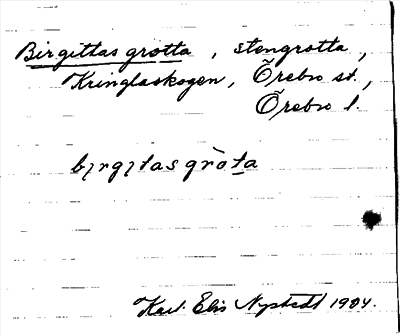 Birgittas grotta, stengrotta,
Kringlaskogen, Örebro st.,
Örebro l.
bịrgịtas grò̀ta
Karl-Elis Nystedt 1984.